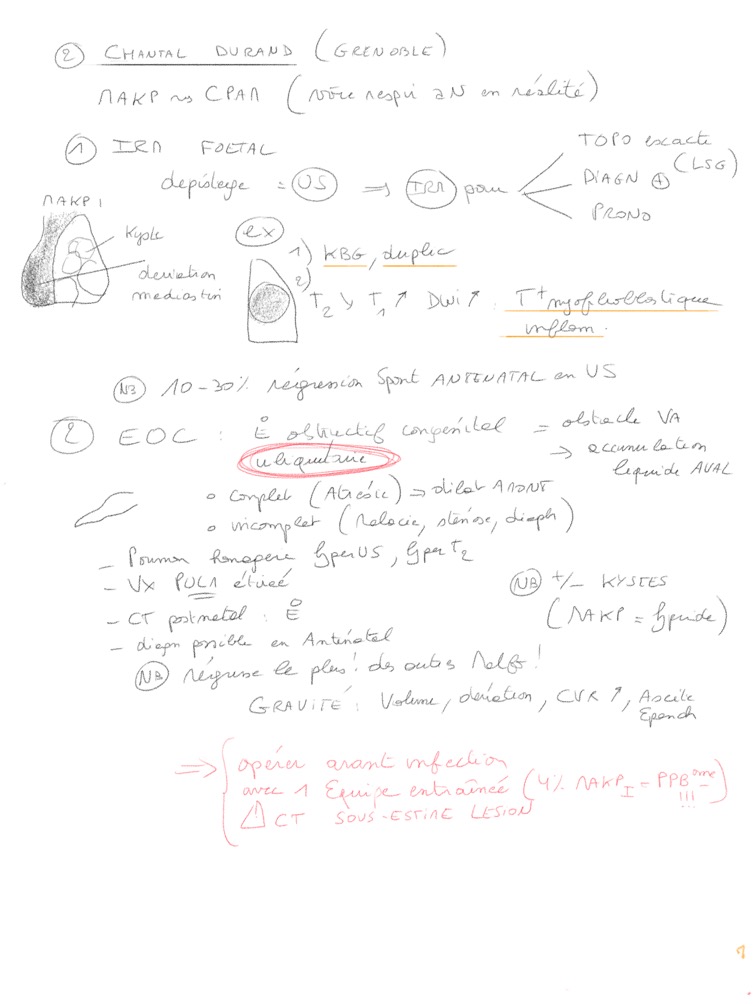 ② CHANTAL DURAND (GRENOBLE)
MAKP ~> CPAM (voire respi 2N en réalité)
① IRM FOETAL
dépistage = US => IRM pour
TOPO exacte
DIAGN ⊕ (LSG)
PRONO
MAKP 1
Kyste
deviation
mediastin
ex
1) KBG, duplic
2) T2 ↘ T1 ↗ DWI ↗ : T+ myofibroblastique
inflam.
NB 10-30% régression Spont ANTENATAL en US
② EOC : E° obstructif congénital = obstacle VA
→ accumulation
liquide AVAL
° complet (Atrésie) → dilat AMONT
° incomplet (Malacie, sténose, diaph)
- Poumon homogène hyperUS, hyperT2
- VX PULM étirée
- CT postnatal : E°
- diagn possible en Anténatal
NB +/- KYSTES
(MAKP = hybride)
NB régresse le plus ! des autres Malf° !
GRAVITÉ : Volume, déviation, CVR ↗, Ascite
Epanch
=> opérer avant infection
avec 1 Equipe entraînée (4% MAKP I = PPBome !!!)
⚠ CT SOUS-ESTIME LESION